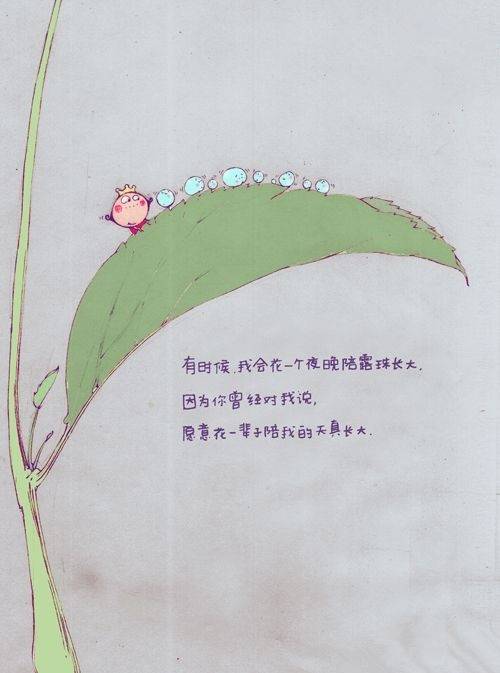 有时候,我会花一个夜晚陪露珠长大,
因为你曾经对我说,
愿意花一辈子陪我的天真长大.